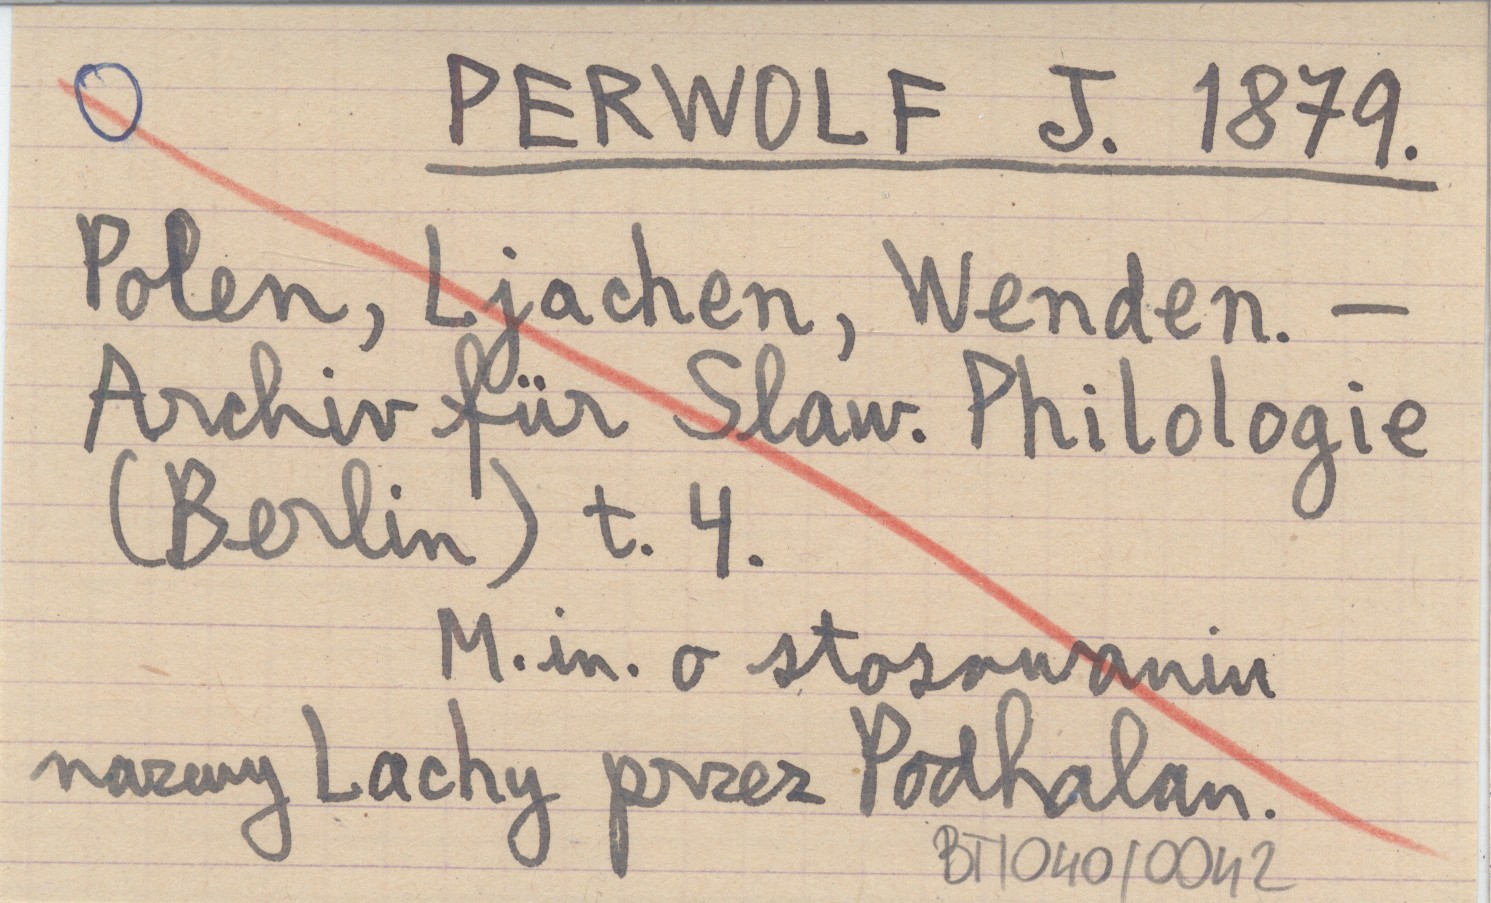 O PERWOLF J. 1879.
Polen, Ljachen, Wenden. —
Archiv für Slaw. Philologie
(Berlin) t. 4.
M. in. o stosowaniu
nazwy Lachy przez Podhalan.
BT1040/0042